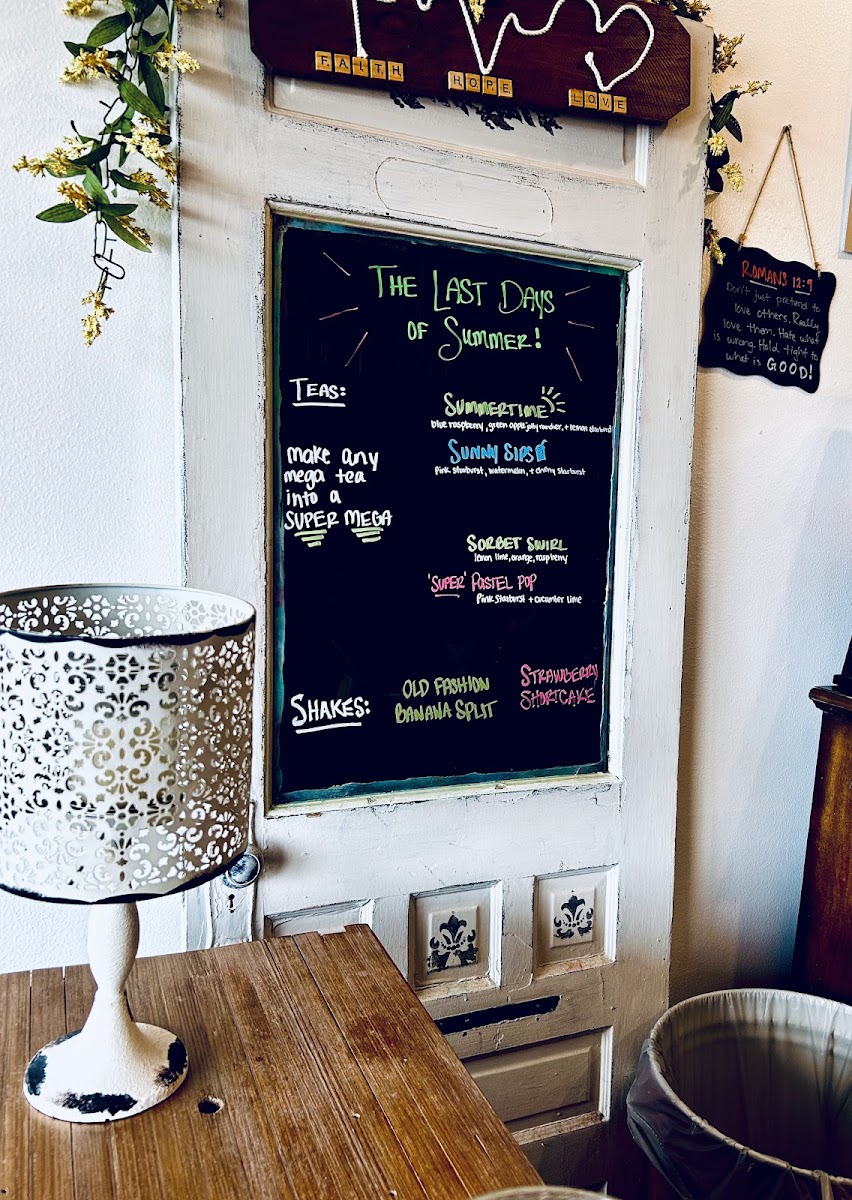 FAITH HOPE LOVE
THE LAST DAYS
OF SUMMER!
TEAS:
SUMMERTIME
blue raspberry, green apple jolly rancher, + lemon starburst
SUNNY SIPS
Pink starburst, watermelon, + cherry starburst
make any
mega tea
into a
SUPER MEGA
SORBET SWIRL
lemon lime, orange, raspberry
'SUPER' PASTEL POP
Pink Starburst + cucumber lime
SHAKES:
OLD FASHION
BANANA SPLIT
STRAWBERRY
SHORTCAKE
ROMANS 12:9
Don't just pretend to
love others. Really
love them. Hate what
is wrong. Hold tight to
what is GOOD!